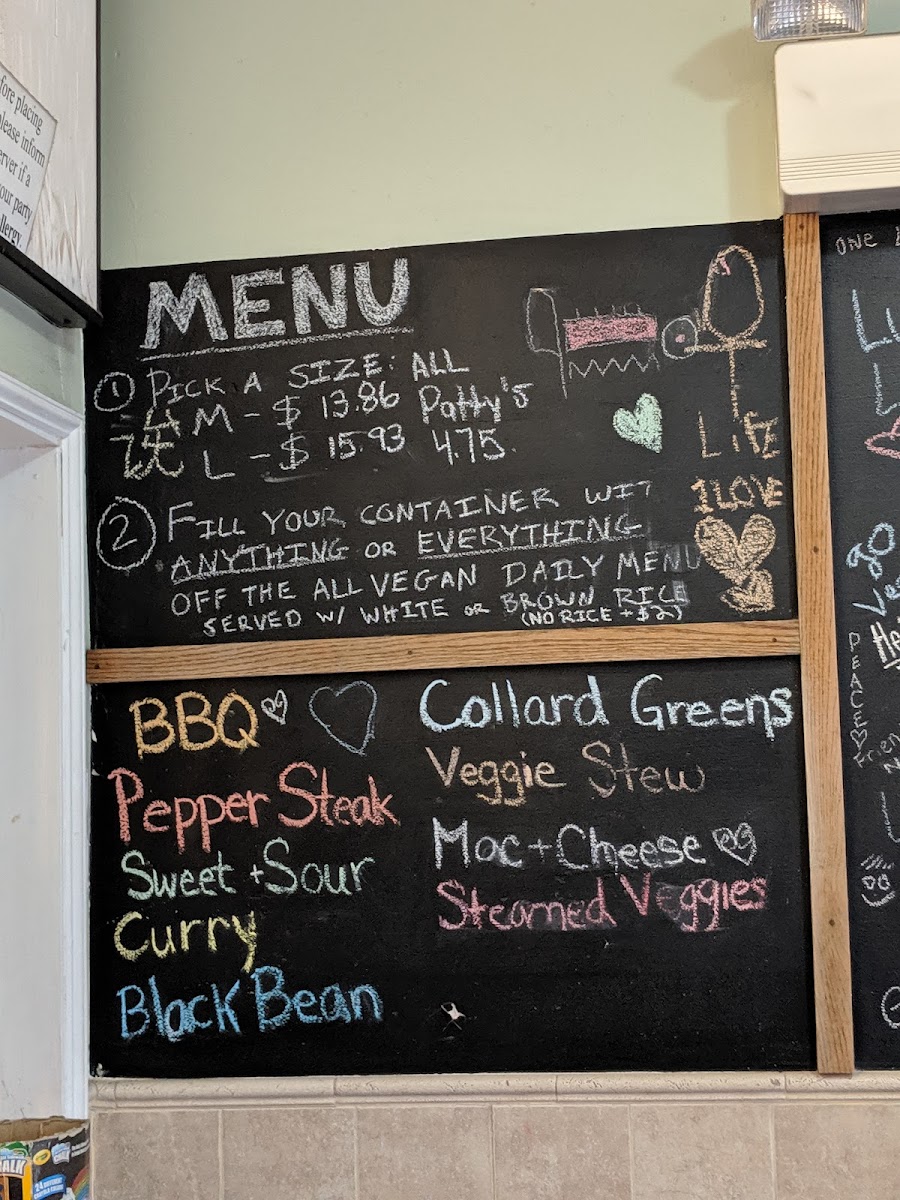 fore placing
please inform
erver if a
our party
llergy.
MENU
1 PICK A SIZE: ALL
M - $ 13.86 Patty's
L - $ 15.93 4.75.
LIFE
1 LOVE
2 FILL YOUR CONTAINER WIT
ANYTHING OR EVERYTHING
OFF THE ALL VEGAN DAILY MENU
SERVED W/ WHITE OR BROWN RICE
(NO RICE +$2)
BBQ
Pepper Steak
Sweet + Sour
Curry
Black Bean
Collard Greens
Veggie Stew
Mac + Cheese
Steamed Veggies
ONE
PEACE